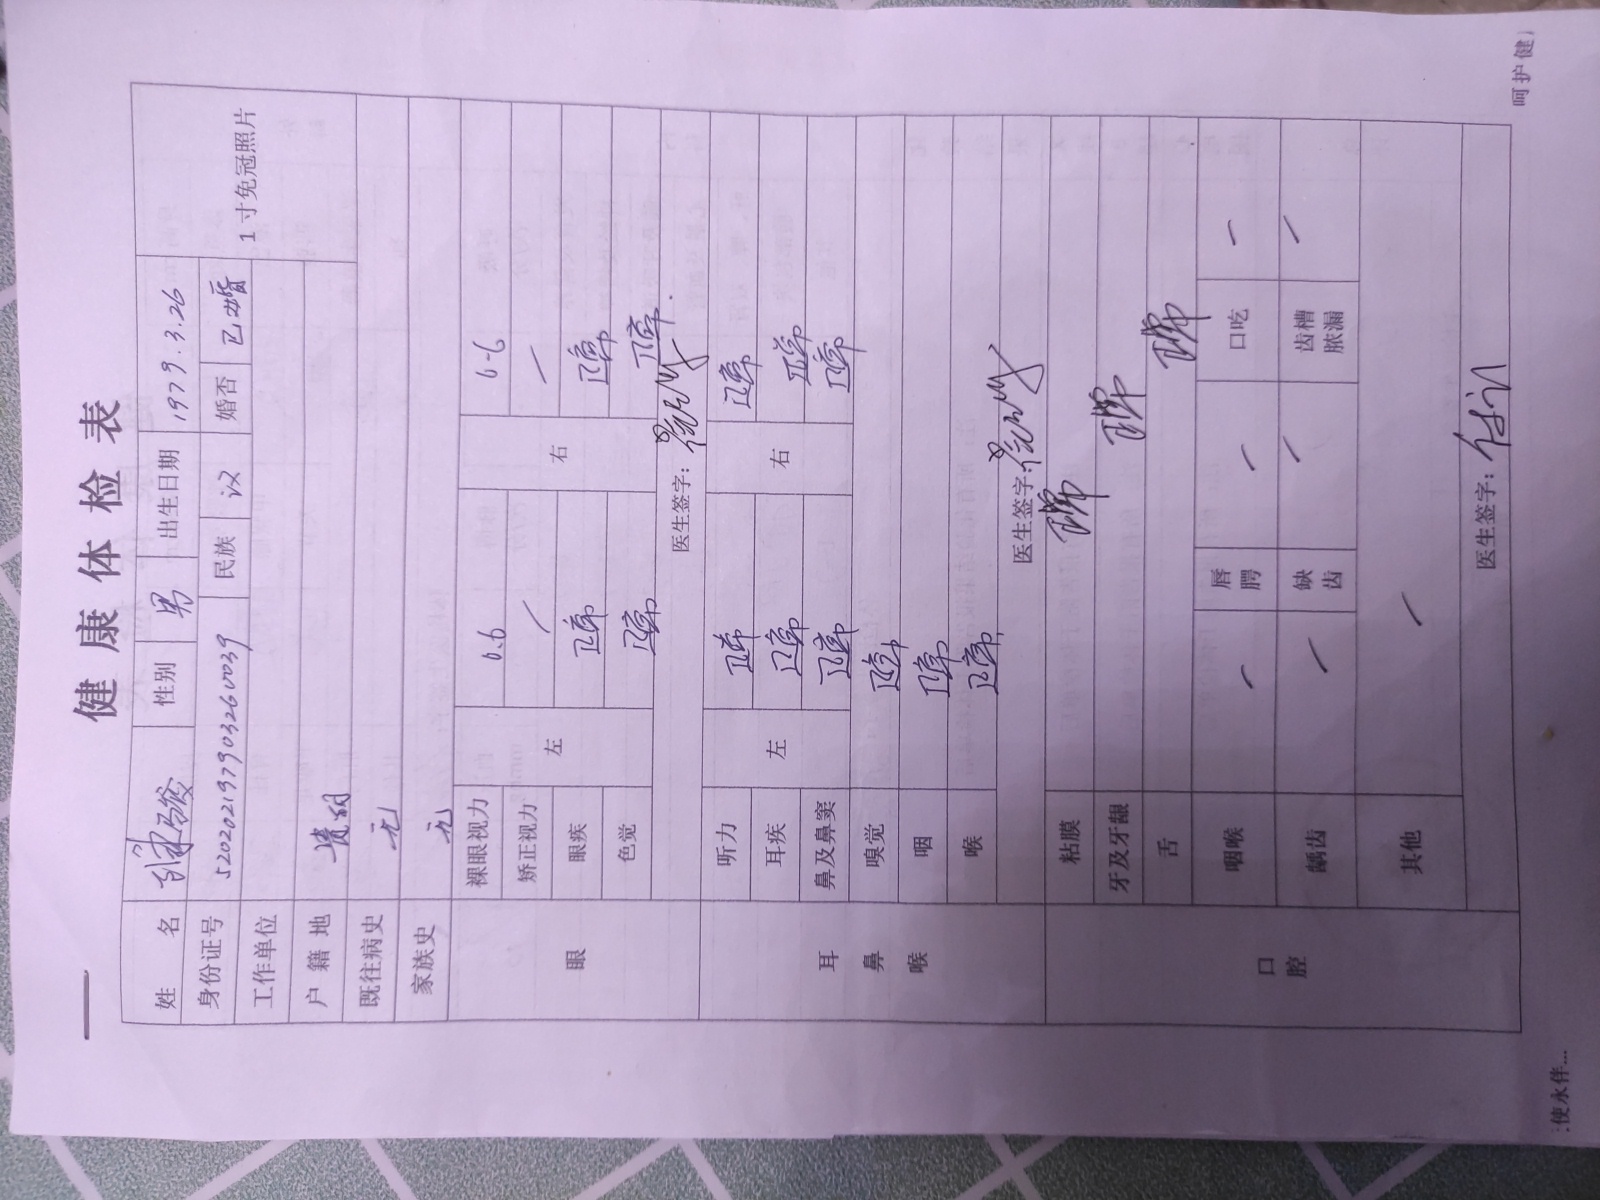 健康体检表
姓名 性别 男 出生日期 1979.3.26
1寸免冠照片
身份证号 520202197903260039 民族 汉 婚否 已婚
工作单位
户籍地 贵州
既往病史 无
家族史 无
眼
裸眼视力 左 0.6 右 0.6
矫正视力 / /
眼疾 正常 正常
色觉 正常 正常
医生签字:
耳鼻喉
听力 左 正常 右 正常
耳疾 正常 正常
鼻及鼻窦 正常 正常
嗅觉 正常
咽 正常
喉 正常
医生签字:
口腔
粘膜 正常
牙及牙龈 正常
舌 正常
咽喉 / 唇腭 / 口吃 /
龋齿 / 缺齿 / 齿槽脓漏 /
其他 /
医生签字:
:使永伴... 呵护健